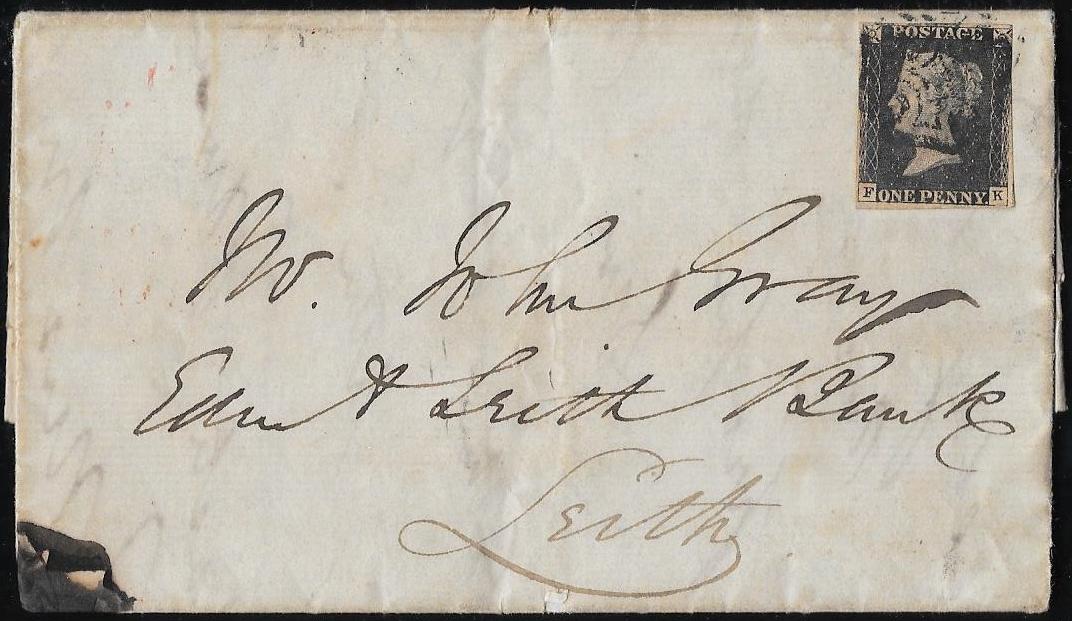 POSTAGE
F ONE PENNY K
Mr. John Gray
Edn & Leith Bank
Leith